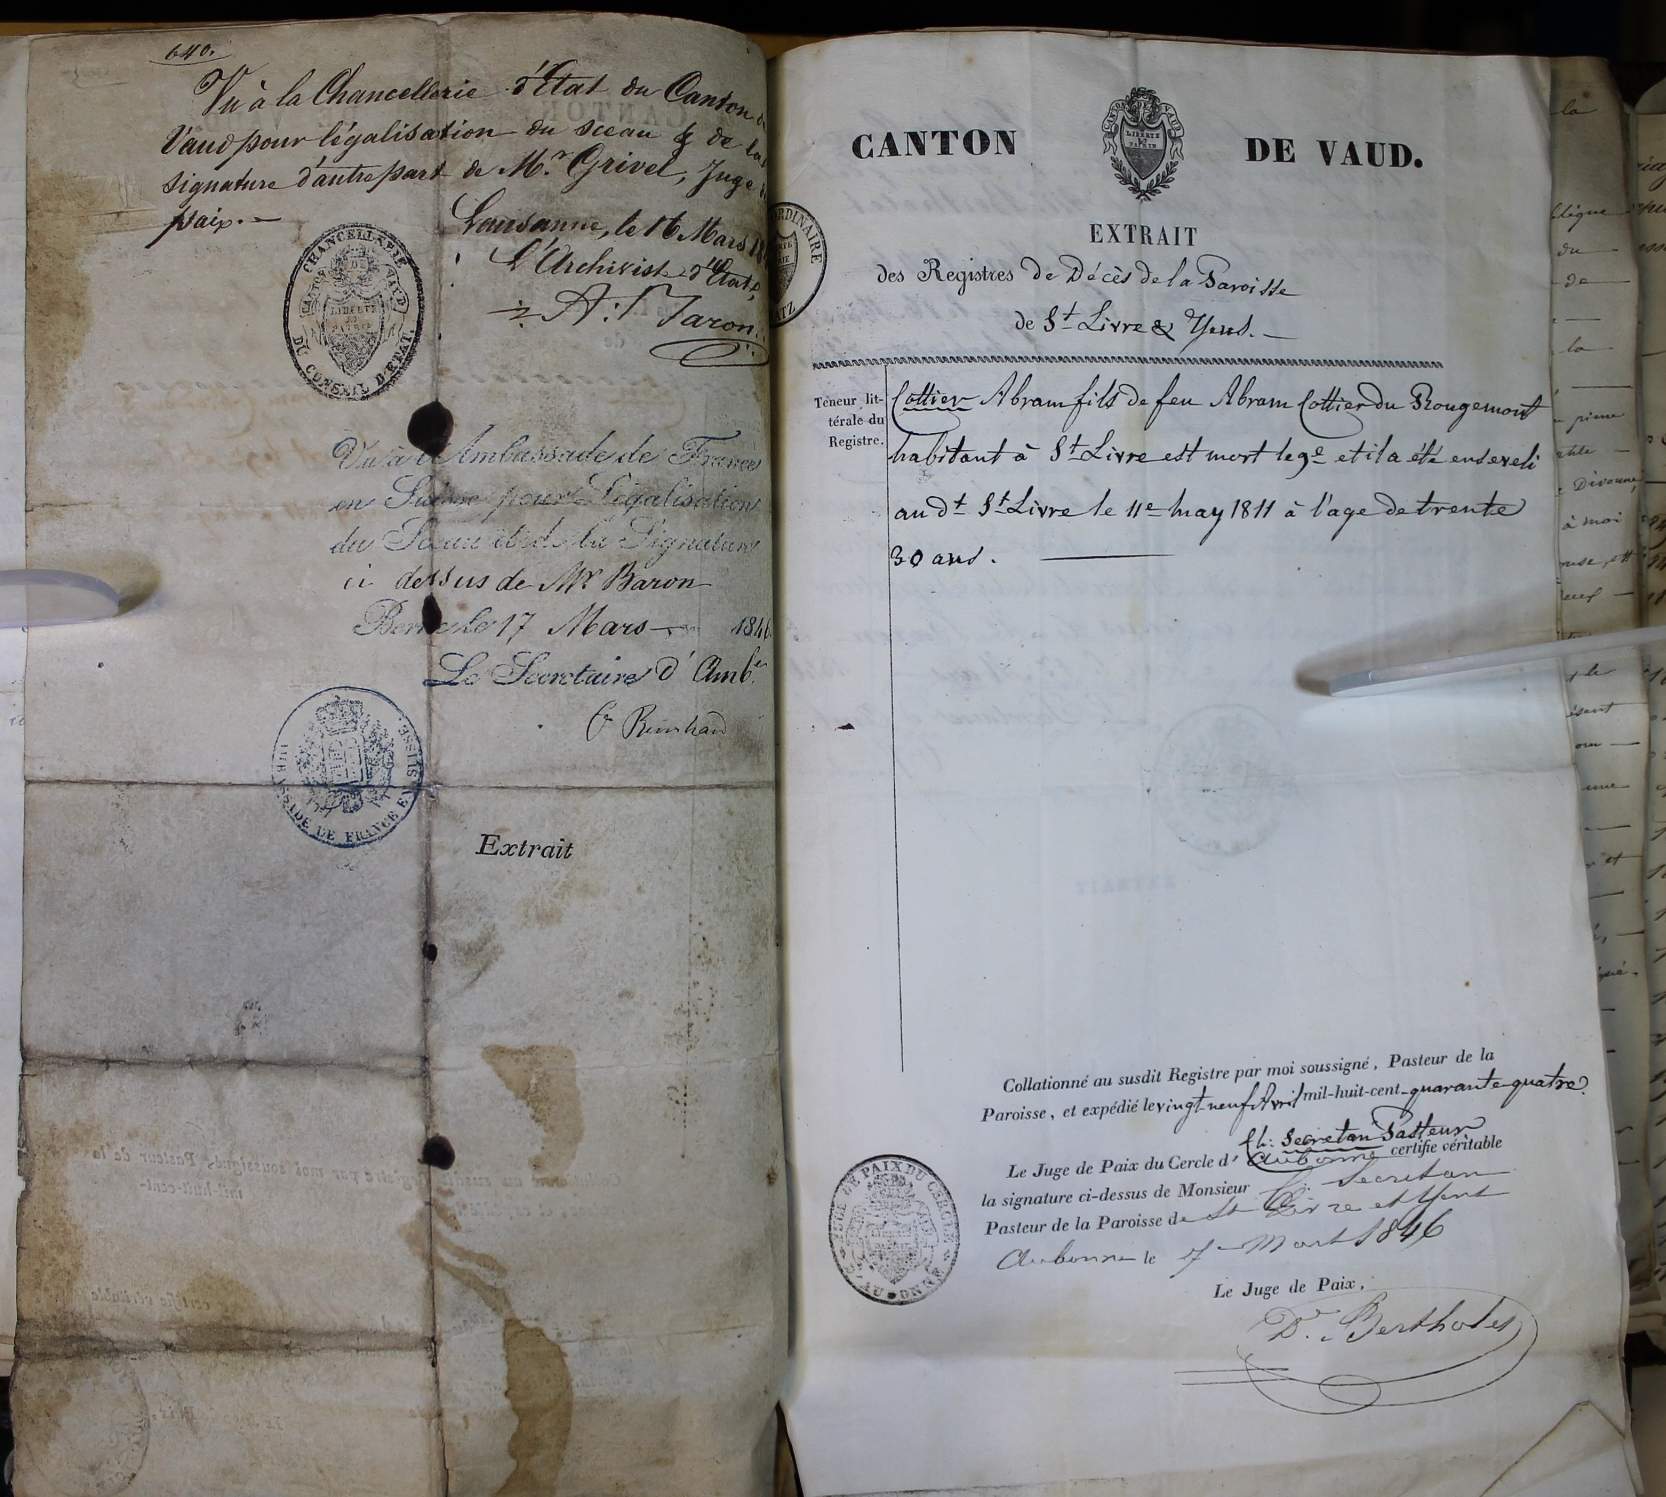 640.
Vu à la Chancellerie d'État du Canton de
Vaud pour légalisation du sceau & de la
signature d'autre part de Mr. Grivel, Juge de
paix.—
Lausanne, le 16 Mars 18
L'Archiviste d'État,
A. Baron.
CHANCELLERIE
DU CONSEIL D'ETAT.
CANTON DE VAUD
LIBERTÉ ET PATRIE
Vu à l'Ambassade de France
en Suisse pour Légalisation
du Sceau et de la Signature
ci dessus de Mr Baron
Berne le 17 Mars 1846
Le Secrétaire d'Ambe.
AMBASSADE DE FRANCE EN SUISSE.
Extrait
ORDINAIRE
CANTON DE VAUD.
CANTON DE VAUD
LIBERTÉ ET PATRIE
EXTRAIT
des Registres de Décès de la Paroisse
de St Livre & Yens.—
Teneur lit-
térale du
Registre.
Cottier Abram fils de feu Abram Cottier du Rougemont
habitant à St Livre est mort le 9e et il a été enseveli
au dt St Livre le 11e may 1811 à l'age de trente
30 ans.
Collationné au susdit Registre par moi soussigné, Pasteur de la
Paroisse, et expédié le vingt neuf Avril mil-huit-cent-quarante-quatre.
Ch: Secretan Pasteur
Le Juge de Paix du Cercle d'Aubonne certifie véritable
la signature ci-dessus de Monsieur Ch. Secretan
Pasteur de la Paroisse de St Livre et Yens
Aubonne le 7 Mars 1846
Le Juge de Paix,
Dr. Bertholet
JUGE DE PAIX DU CERCLE
D'AUBONNE